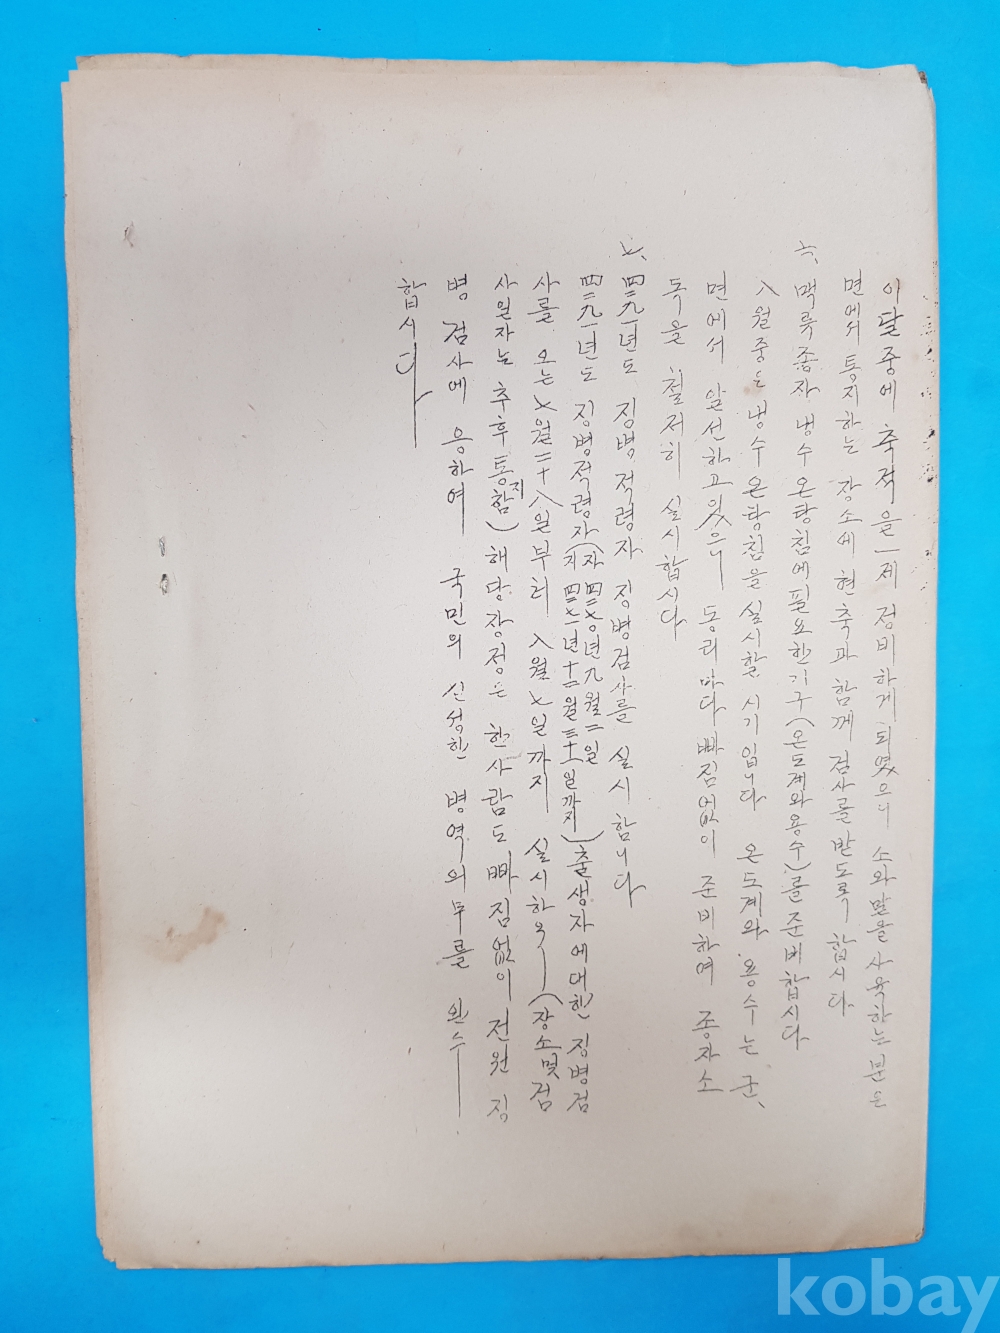 이달중에 축적을 一제 정비하게 되였으니 소와 말을 사육하는 분은
면에서 통지하는 장소에 현축과 함께 검사를 받도록 합시다
六、맥류종자 냉수온탕침에 필요한 기구(온도계와 용수)를 준비합시다
八월중은 냉수온탕침을 실시할 시기입니다 온도계와 용수는 군、
면에서 알선하고 있으니 동리마다 빠짐없이 준비하여 종자소
독을 철저히 실시합시다
七、四二九一년도 징병적령자 징병검사를 실시합니다
四二九一년도 징병적령자(자四二七0년九월二일 지四二七一년十二월三十一일까지)출생자에대한 징병검
사를 오는 七월二十八일부터 八월七일까지 실시하오니(장소및검
사일자는 추후통지함)해당장정은 한사람도 빠짐없이 전원 징
병검사에 응하여 국민의 신성한 병역의무를 완수
합시다
kobay